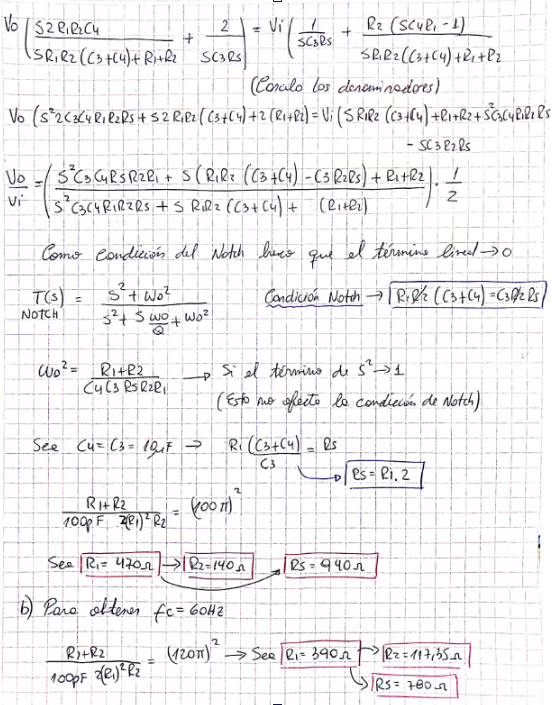 Vo ( S2R1R2C4 / SR1R2(C3+C4)+R1+R2 + 2 / SC3R5 ) = Vi ( 1 / SC3R5 + R2 (SC4R1 -1) / SR1R2(C3+C4)+R1+R2
(Cancelo los denominadores)
Vo (S²2C3C4R1R2R5 + S2R1R2(C3+C4)+2(R1+R2) = Vi(SR1R2(C3+C4)+R1+R2+S²C3C4R1R2R5
- SC3R2R5
Vo/Vi = ( S²C3C4R5R2R1 + S(R1R2((C3+C4) - C3R2R5) + R1+R2 / S²C3C4R1R2R5 + SR1R2(C3+C4) + (R1+R2) ) · 1/2
Como condición del Notch busco que el término lineal → 0
T(s) NOTCH = S² + Wo² / S² + S Wo/Q + Wo² Condición Notch → R1R2 (C3+C4) = C3R2R5
Wo² = R1+R2 / C4C3R5R2R1 → Si el término de S² → 1
(Esto no afecta la condición de Notch)
Sea C4=C3=10μF → R1 (C3+C4) / C3 = R5
→ R5=R1.2
R1+R2 / 100pF 2(R1)²R2 = (100π)²
Sea R1=470Ω → R2=140Ω R5=940Ω
b) Para obtener fc=60Hz
R1+R2 / 100pF 2(R1)²R2 = (120π)² → Sea R1=390Ω → R2=117,35Ω
→ R5=780Ω